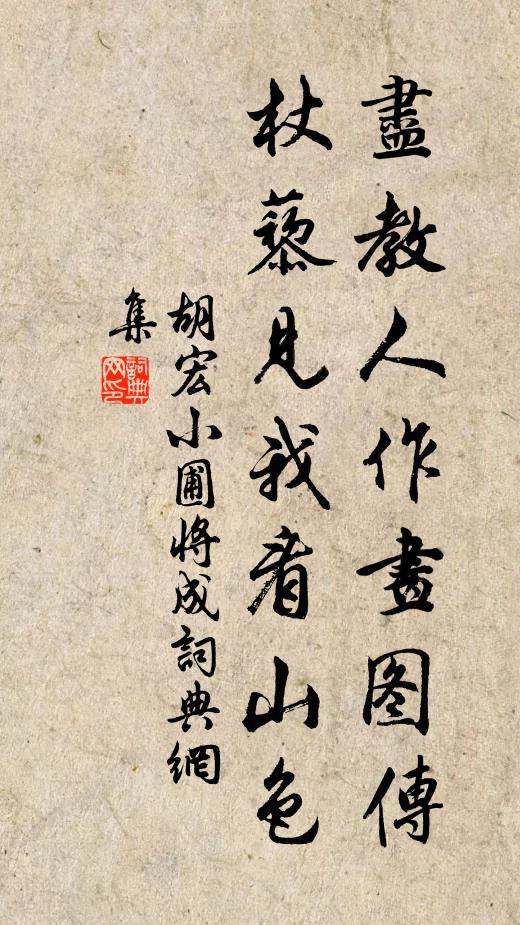 盡教人作畫图傳
杖藜見我看山色
胡宏小圃將成詞典網
集
詞典
网印